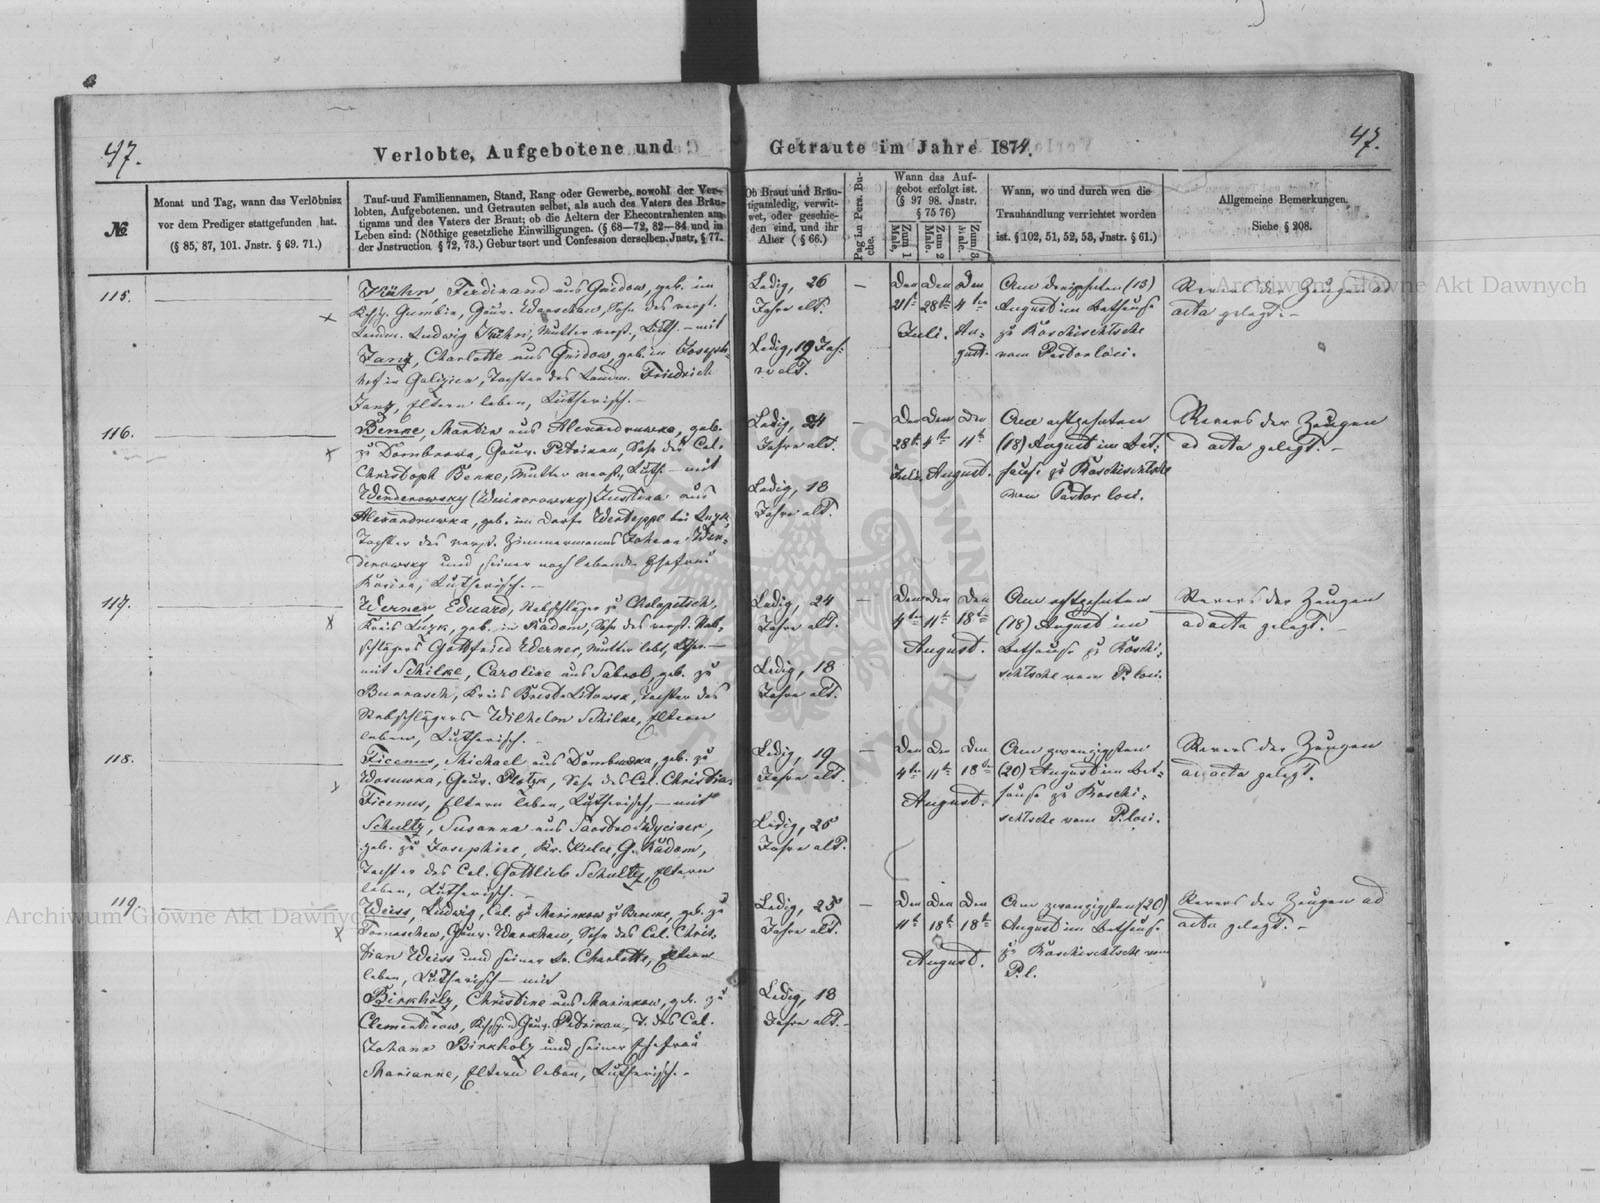 47.
Verlobte, Aufgebotene und
Getraute im Jahre 1874.
47.
№
Monat und Tag, wann das Verlöbnisz
vor dem Prediger stattgefunden hat.
(§ 85, 87, 101. Jnstr. § 69. 71.)
Tauf-und Familiennamen, Stand, Rang oder Gewerbe, sowohl der Ver-
lobten, Aufgebotenen. und Getrauten selbst, als auch des Vaters des Bräu-
tigams und des Vaters der Braut; ob die Aeltern der Ehecontrahenten am
Leben sind: (Nöthige gesetzliche Einwilligungen. (§ 68—72, 82—84 und in
der Jnstruction § 72, 73.) Geburtsort und Confession derselben. Jnstr. § 77.
Ob Braut und Bräu-
tigam ledig, verwit-
wet, oder geschie-
den sind, und ihr
Alter ( § 66.)
Pag in Pers. Bu-
che.
Wann das Auf-
gebot erfolgt ist.
(§ 97 98. Jnstr.
§ 75 76)
Zum 1 Male.
Zum 2 Male.
Zum 3. Male.
Wann, wo und durch wen die
Trauhandlung verrichtet worden
ist. § 102, 51, 52, 53, Jnstr. § 61.)
Allgemeine Bemerkungen.
Siehe § 208.
115.
Kühn Ferdinand aus Gnidow, geb. im
Gumbin, Gouv. Warschau, Sohn des verst.
Ludwig Kühn, Mutter verst., Luth. – mit
Janz, Charlotte aus Gnidow, geb. in Joseph-
hof in Galizien, Tochter des Landm. Friedrich
Janz, Eltern leben, Lutherisch. –
Ledig, 26
Jahre alt.
Ledig, 19 Jah-
re alt.
–
Den 21t
Den 28ten
Juli.
Den 4ten
Au-
gust.
Am dreizehnten (13)
August im Bethause
zu Roschischtsche
vom Pastor loci.
Revers der Zeugen ad
acta gelegt. –
116.
Benke, Martin aus Alexandruwka, geb.
zu Dombrowa, Gouv. Petrikau, Sohn des Col.
Christoph Benke, Mutter verst., Luth. – mit
Wenderowsky Justina aus
Alexandruwka, geb. im Dorfe bei Luzk,
Tochter des verst. Zimmermanns Johann Wen-
derowsky und seiner noch lebenden Ehefrau
Lutherisch. –
Ledig, 24
Jahre alt.
Ledig, 18
Jahre alt.
–
Den 28t
Juli,
Den 4ten
Den 11t
August.
Am achtzehnten
(18) August im Bet-
hause zu Roschischtsche
vom Pastor loci.
Revers der Zeugen
ad acta gelegt. –
117.
Werner Eduard, zu Cholopetsch,
Kreis Luzk, geb. in Radom, Sohn des verst.
Gottfried Werner, Mutter lebt, Luther. –
mit Schilke, Caroline aus geb. zu
Kreis Brest-Litowsk, Tochter des
Wilhelm Schilke, Eltern
leben, Lutherisch. –
Ledig, 24
Jahre alt.
Ledig, 18
Jahre alt.
–
Den 4ten
den 11t
Den 18ten
August.
Am achtzehnten
(18) August im
Bethause zu Roschi-
schtsche vom P. loci.
Revers der Zeugen
ad acta gelegt. –
118.
Ficenus, Michael aus geb. zu
Gouv. Plotzk, Sohn des Col. Christian
Ficenus, Eltern leben, Lutherisch, – mit
Schultz, Susanna aus
geb. zu Josephine, Kr. G. Radom,
Tochter des Col. Gottlieb Schultz, Eltern
leben, Lutherisch. –
Ledig, 19
Jahre alt.
Ledig, 25
Jahre alt.
–
Den 4ten
Den 11t
Den 18ten
August.
Am zwanzigsten
(20) August im Bet-
hause zu Roschi-
schtsche vom P. loci.
Revers der Zeugen
ad acta gelegt.
119.
Weiss, Ludwig, Col. zu geb. zu
Tomaschew, Gouv. Warschau, Sohn des Col. Chris-
tian Weiss und seiner Fr. Charlotte, Eltern
leben, Lutherisch – mit
Birkholz, Christine aus Marinkow, geb. zu
Clementinow, Gouv. Petrikau, T. des Col.
Johann Birkholz und seiner Ehefrau
Marianne, Eltern leben, Lutherisch. –
Ledig, 25
Jahre alt.
Ledig, 18
Jahre alt. –
–
Den 11t
Den 18t
Den 18t
August.
Am zwanzigsten (20)
August im Bethause
zu Roschischtsche vom
P. l.
Revers der Zeugen ad
acta gelegt. –
Archiwum Główne Akt Dawnych
Archiwum Główne Akt Dawnych